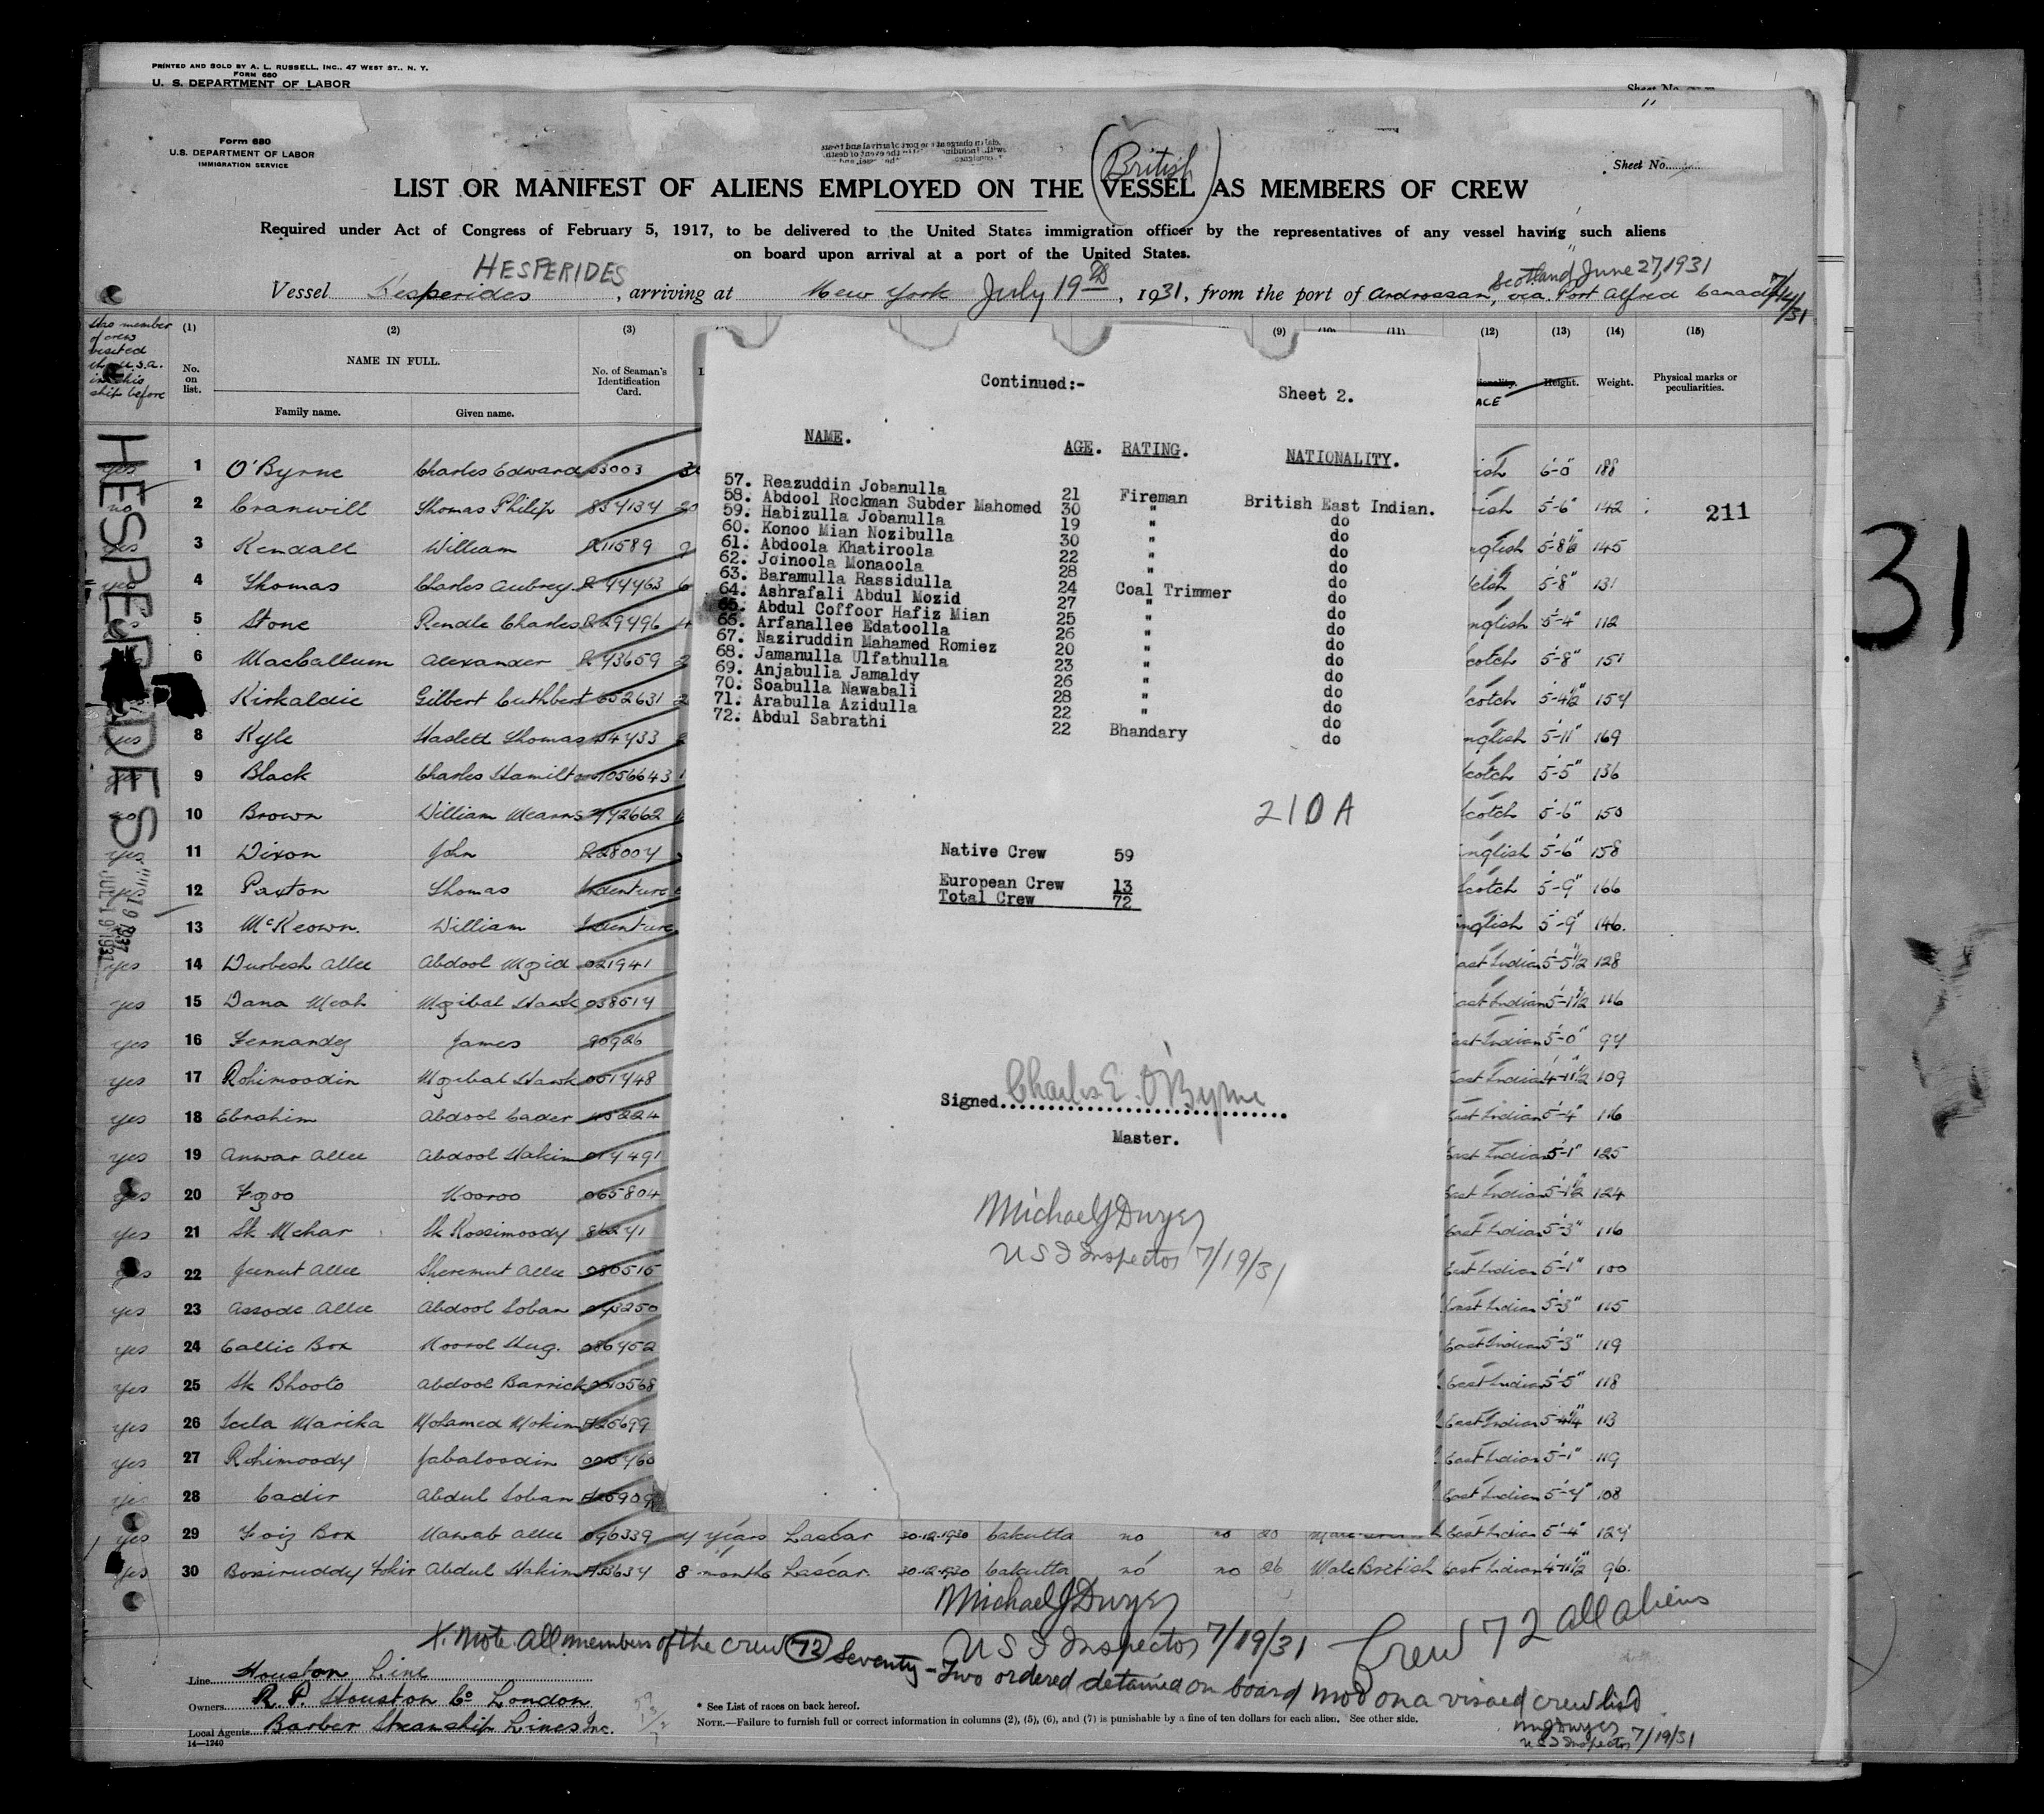 PRINTED AND SOLD BY A. L. RUSSELL, INC., 47 WEST ST., N. Y.
FORM 680
U. S. DEPARTMENT OF LABOR
Sheet No.
Form 680
U. S. DEPARTMENT OF LABOR
IMMIGRATION SERVICE
Sheet No.
(British)
LIST OR MANIFEST OF ALIENS EMPLOYED ON THE VESSEL AS MEMBERS OF CREW
Required under Act of Congress of February 5, 1917, to be delivered to the United States immigration officer by the representatives of any vessel having such aliens
on board upon arrival at a port of the United States.
HESPERIDES
Scotland June 27, 1931
Vessel Hesperides, arriving at New York July 19th, 1931, from the port of Ardrossan, via Port Alfred Canada 7/14/31
Has member of crew visited the U.S.A. in this ship before
(1) (2) (3) (9) (10) (11) (12) (13) (14) (15)
No. on list.
NAME IN FULL.
Family name. Given name.
No. of Seaman's Identification Card.
RACE
Height. Weight.
Physical marks or peculiarities.
HESPERIDES
JUL 19 1931
211
31
yes 1 O'Byrne Charles Edward 53003 6-0" 188
no 2 Cranwill Thomas Philip 854134 5-6" 142
yes 3 Kendall William R11589 English 5-8½ 145
yes 4 Thomas Charles Aubrey R44463 Welsh 5-8" 131
5 Stone Rendle Charles R29496 English 5-4" 112
6 MacCallum Alexander R43659 Scotch 5-8" 151
Kirkaldie Gilbert Cuthbert 652631 Scotch 5-4½" 154
yes 8 Kyle Haslett Thomas English 5-11" 169
9 Black Charles Hamilton 1056643 Scotch 5-5" 136
10 Brown William Mearns 992662 Scotch 5-6" 150
yes 11 Dixon John R28004 English 5-6" 158
yes 12 Paxton Thomas Indenture Scotch 5-9" 166
13 McKeown William Indenture English 5-9" 146
yes 14 Durbesh Allee Abdool Mozid 021941 East Indian 5-5½ 128
yes 15 Dana Meah Mozibal Hawk 038514 East Indian 5-1½ 116
yes 16 Fernandez James 20926 East Indian 5-0" 94
yes 17 Rohimoodin Mozibal Hawk 051448 East Indian 4-11½ 109
yes 18 Ebrahim Abdool Cader 45224 East Indian 5-4" 116
yes 19 Anwar Allee Abdool Hakim 014491 East Indian 5-1" 125
yes 20 Fozoo Nooroo 065804 East Indian 5-1½ 124
yes 21 Sk Mehar Sk Kossimoody 86241 East Indian 5-3" 116
yes 22 Junut Allee Sheremut Allee 080515 East Indian 5-1" 100
yes 23 Assode Allee Abdool Soban 043250 East Indian 5-3" 115
yes 24 Callie Box Noorol Hug. 086452 East Indian 5-3" 119
yes 25 Sk Bhooto Abdool Barrick East Indian 5-5" 118
yes 26 Mohamed Mokim East Indian 113
yes 27 Rohimoody Jabaloodin East Indian 5-1" 119
yes 28 Cadir Abdul Soban East Indian 5-4" 108
yes 29 Foiz Box Nawab Allee 096339 4 years Lascar 30-12-1930 Calcutta no no 20 East Indian 5-4" 124
yes 30 Bosiruddy Fokir Abdul Hakim 8 months Lascar 30-12-1930 Calcutta no no 26 Male British East Indian 4-11½ 96.
Continued:- Sheet 2.
NAME. AGE. RATING. NATIONALITY.
57. Reazuddin Jobanulla 21 Fireman British East Indian.
58. Abdool Rockman Subder Mahomed 30 " do
59. Habizulla Jobanulla 19 " do
60. Konoo Mian Nozibulla 30 " do
61. Abdoola Khatiroola 22 " do
62. Joinoola Monaoola 28 " do
63. Baramulla Rassidulla 24 Coal Trimmer do
64. Ashrafali Abdul Mozid 27 " do
65. Abdul Coffoor Hafiz Mian 25 " do
66. Arfanallee Edatoolla 26 " do
67. Naziruddin Mahamed Romiez 20 " do
68. Jamanulla Ulfathulla 23 " do
69. Anjabulla Jamaldy 26 " do
70. Soabulla Nawabali 28 " do
71. Arabulla Azidulla 22 " do
72. Abdul Sabrathi 22 Bhandary do
210A
Native Crew 59
European Crew 13
Total Crew 72
Signed Charles E. O'Byrne
Master.
Michael J Dwyer
U S I Inspector 7/19/31
Michael J Dwyer
U S I Inspector 7/19/31
Crew 72 all aliens
X. Note. All members of the crew (72) Seventy-Two ordered detained on board
not on a visaed crew list
MJ Dwyer
U S I Inspector 7/19/31
Line Houston Line
Owners R. P. Houston Co London
Local Agents Barber Steamship Lines Inc.
14—1240
* See List of races on back hereof.
NOTE.—Failure to furnish full or correct information in columns (2), (5), (6), and (7) is punishable by a fine of ten dollars for each alien. See other side.